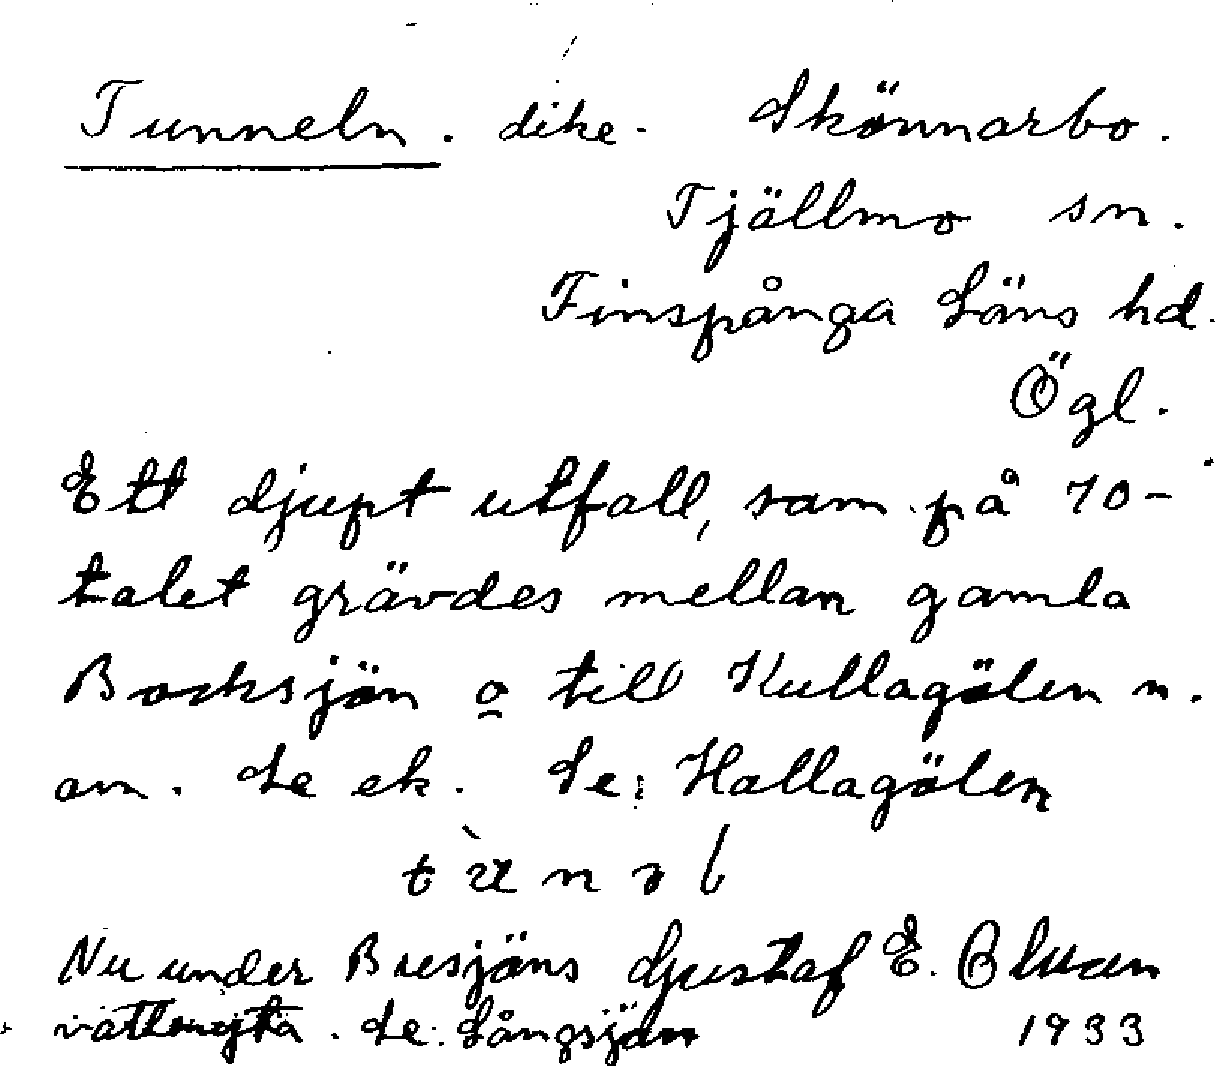 Tunneln. dike. Skönnarbo.
Tjällmo sn.
Finspånga Läns hd.
Ögl.
Ett djupt utfall, som på 70-
talet grävdes mellan gamla
Bocksjön o till Kullagölen m.
om. Se ek. Se: Hallagölen
Nu under Busjöns Gustaf E.
vattenyta. Se: Långsjön 1933